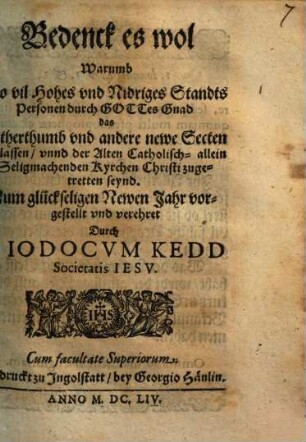 7
Bedenck es wol
Warumb
o vil Hohes vnd Nidriges Standts
Personen durch GOTTes Gnad
das
therthumb vnd andere newe Secten
lassen / vnnd der Alten Catholisch- allein
Seligmachenden Kyrchen Christi zuge-
tretten seynd.
um glückseligen Newen Jahr vor-
gestellt vnd verehret
Durch
IODOCVM KEDD
Societatis IESV.
IHS
Cum facultate Superiorum.
druckt zu Ingolstatt / bey Georgio Hänlin.
ANNO M. DC. LIV.